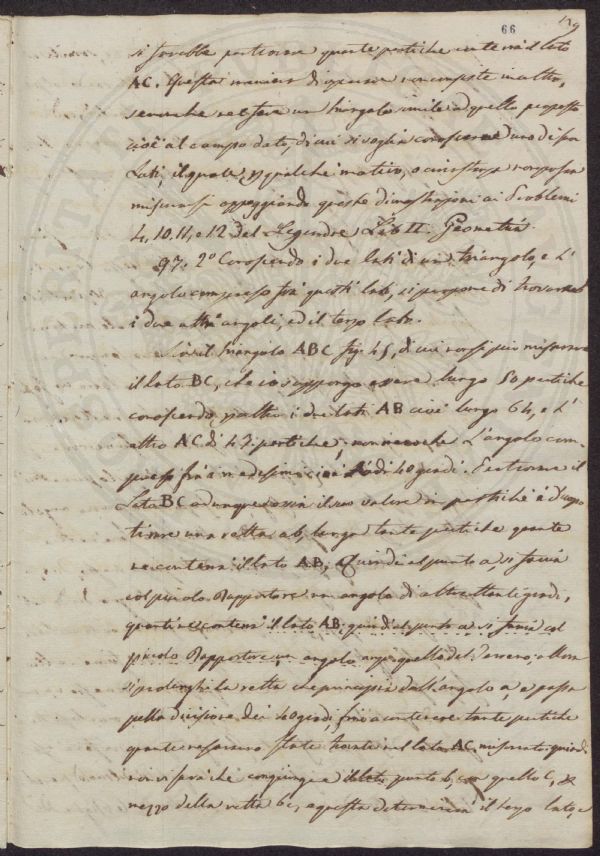 66
129
si sarebbe pertanto quante pertiche contenea il lato
AC. Questa maniera di operare non consiste in altro,
senonche nel fare un triangolo simile a quello proposto
cioè al campo dato, di cui si voglia conoscere uno di suoi
Lati, il quale p qualche motivo, o circostanza non possa
misurarsi appoggiando queste dimostrazioni ai Problemi
4, 10, 11, e 12 del Legendre Lib II. Geometria.
97. 2° Conoscendo i due lati di un triangolo, e l'
angolo compreso fra questi lati, si propone di trovare
i due altri angoli, ed il terzo lato.
Sia il triangolo ABC fig. 45, di cui non si può misurare
il lato BC, che io suppongo essere lungo 50 pertiche
conoscendo p altro i due lati AB cioè lungo 64, e l'
altro AC di 47 pertiche, non meno che l'angolo com-
preso fra i medesimi cioè di 40 gradi. Per trovare il
Lato BC adunque ossia il suo valore in pertiche è d'uopo
tirare una retta ab, lunga tante pertiche quante
ne contiene il lato AB, Quindi al punto a si faccia
col piccolo Rapportatore un angolo di altrettanti gradi,
quanti ne contiene il lato AB. quindi al punto a si faccia col
piccolo Rapportatore un angolo quello del Terreno; allora
si prolunghi la retta che principia dall'angolo a, e passa
pella divisione dei 40 gradi, fino a contenere tante pertiche
quante ne saranno state trovate nel lato AC misurato; quindi
non si farà che congiungere il punto b, con quello C, p
mezzo della retta bc, e questa determinerà il terzo lato, e